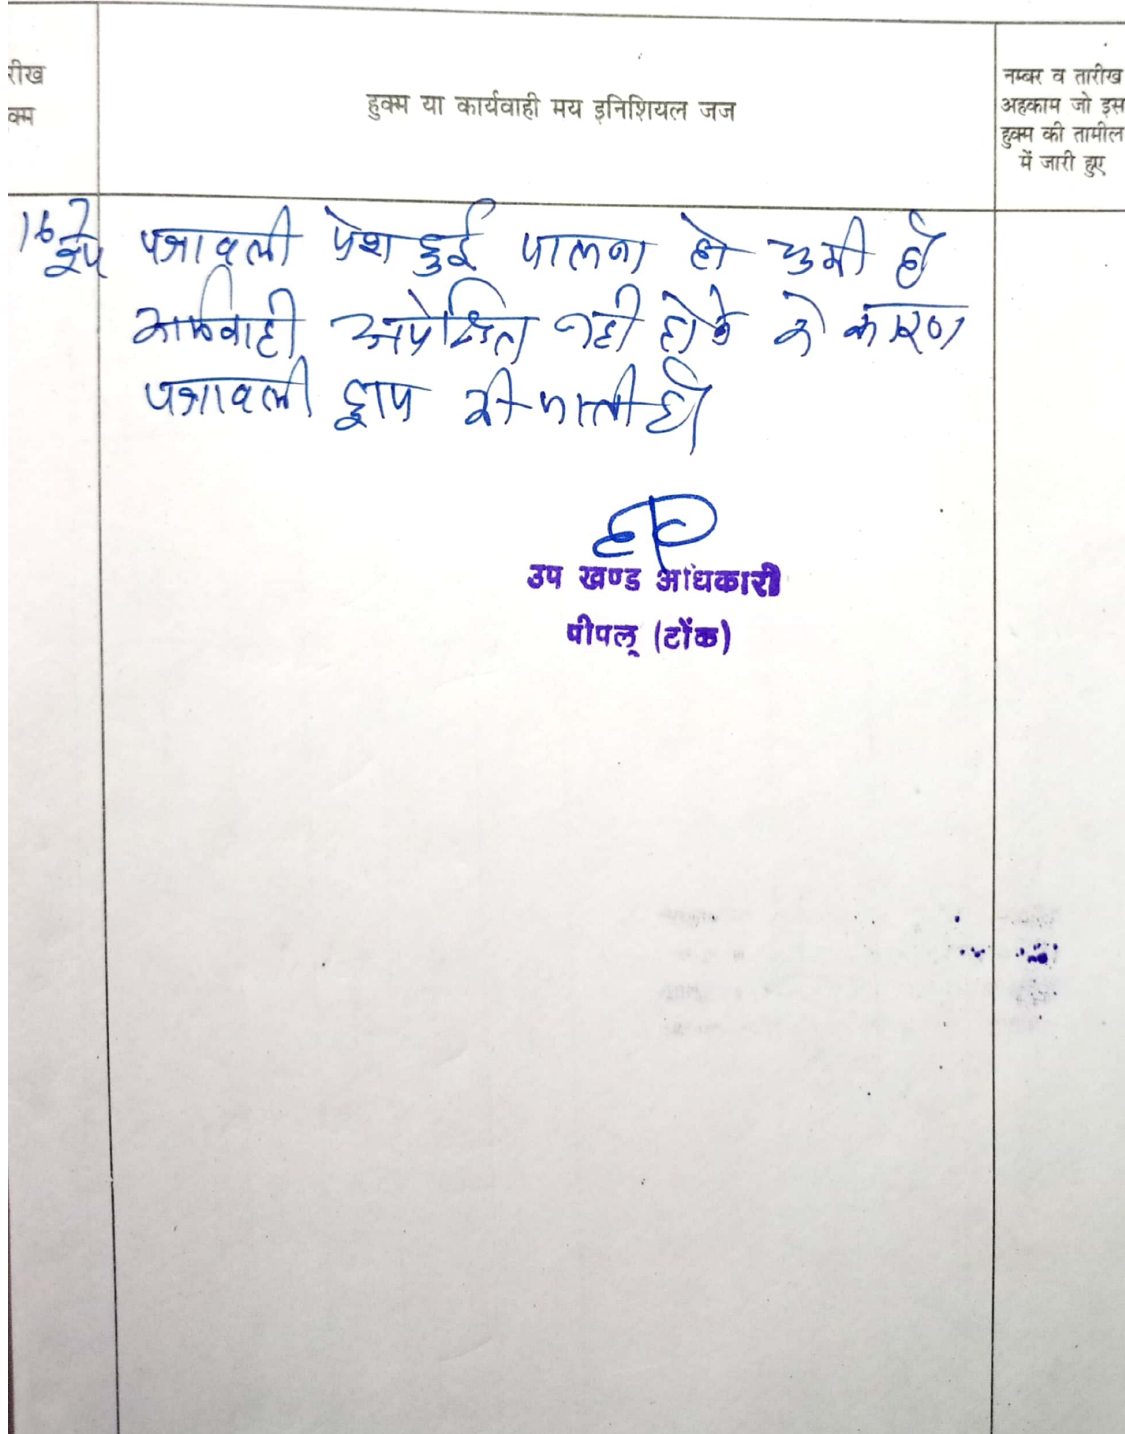 रीख
क्म
हुक्म या कार्यवाही मय इनिशियल जज
नम्बर व तारीख
अहकाम जो इस
हुक्म की तामील
में जारी हुए
16/7
पत्रावली पेश हुई पालना हो चुकी है
कार्यवाही अपेक्षित नही होने के कारण
पत्रावली ड्राप की जाती है।
उप खण्ड अधिकारी
पीपलू (टोंक)